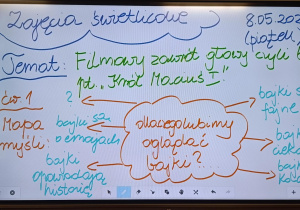 Zajęcia świetlicowe
8.05.20
(piątek
Temat: Filmowy zawrót głowy czyli b
pt. „Król Maciuś I"
ćw. 1
Mapa
myśli:
?
bajki są
o emocjach
bajki
opowiadają
historię
dlaczego lubimy
oglądać
bajki?
bajki są
fajne
bajki
bajki